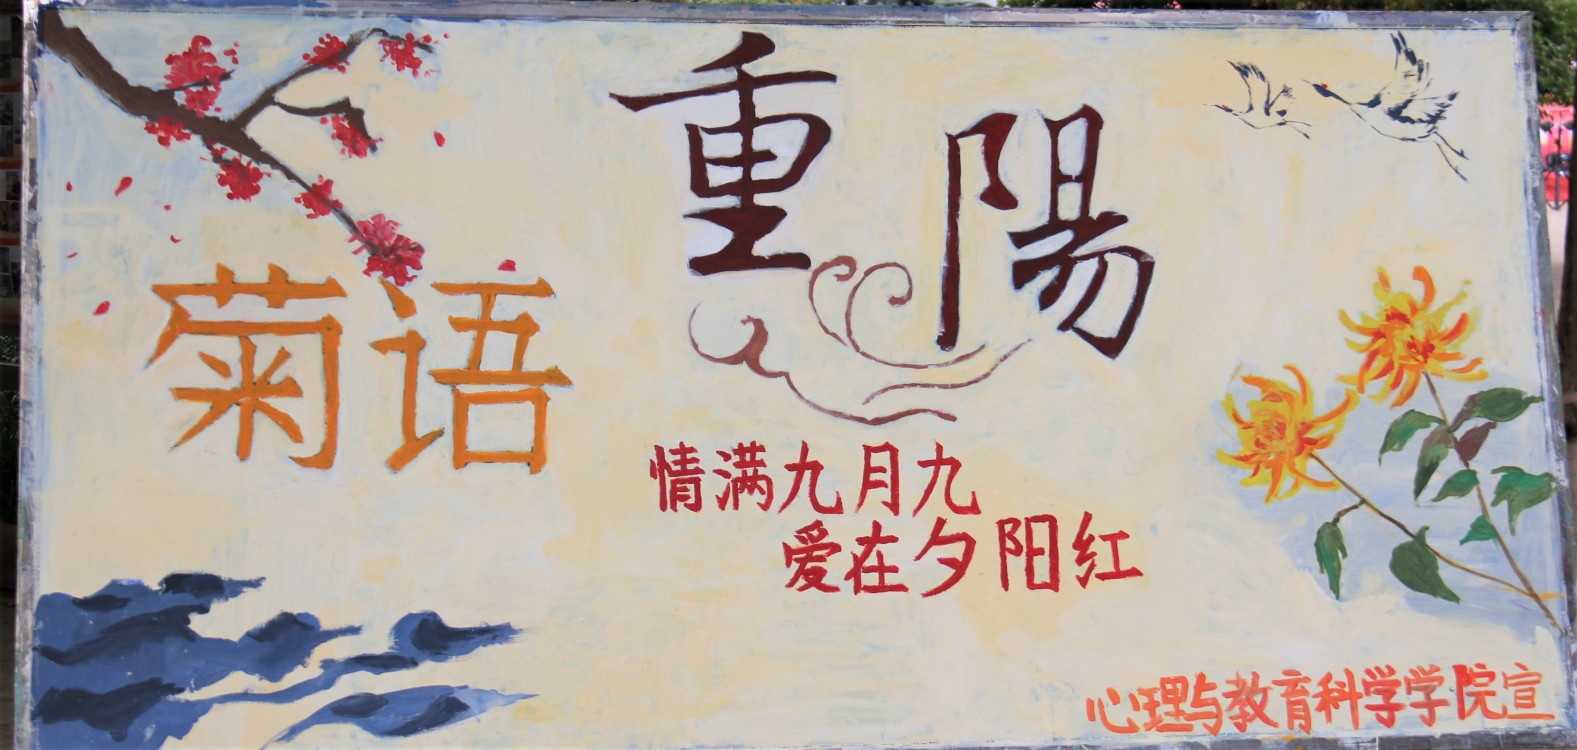 菊语
重陽
情满九月九
爱在夕阳红
心理与教育科学学院宣